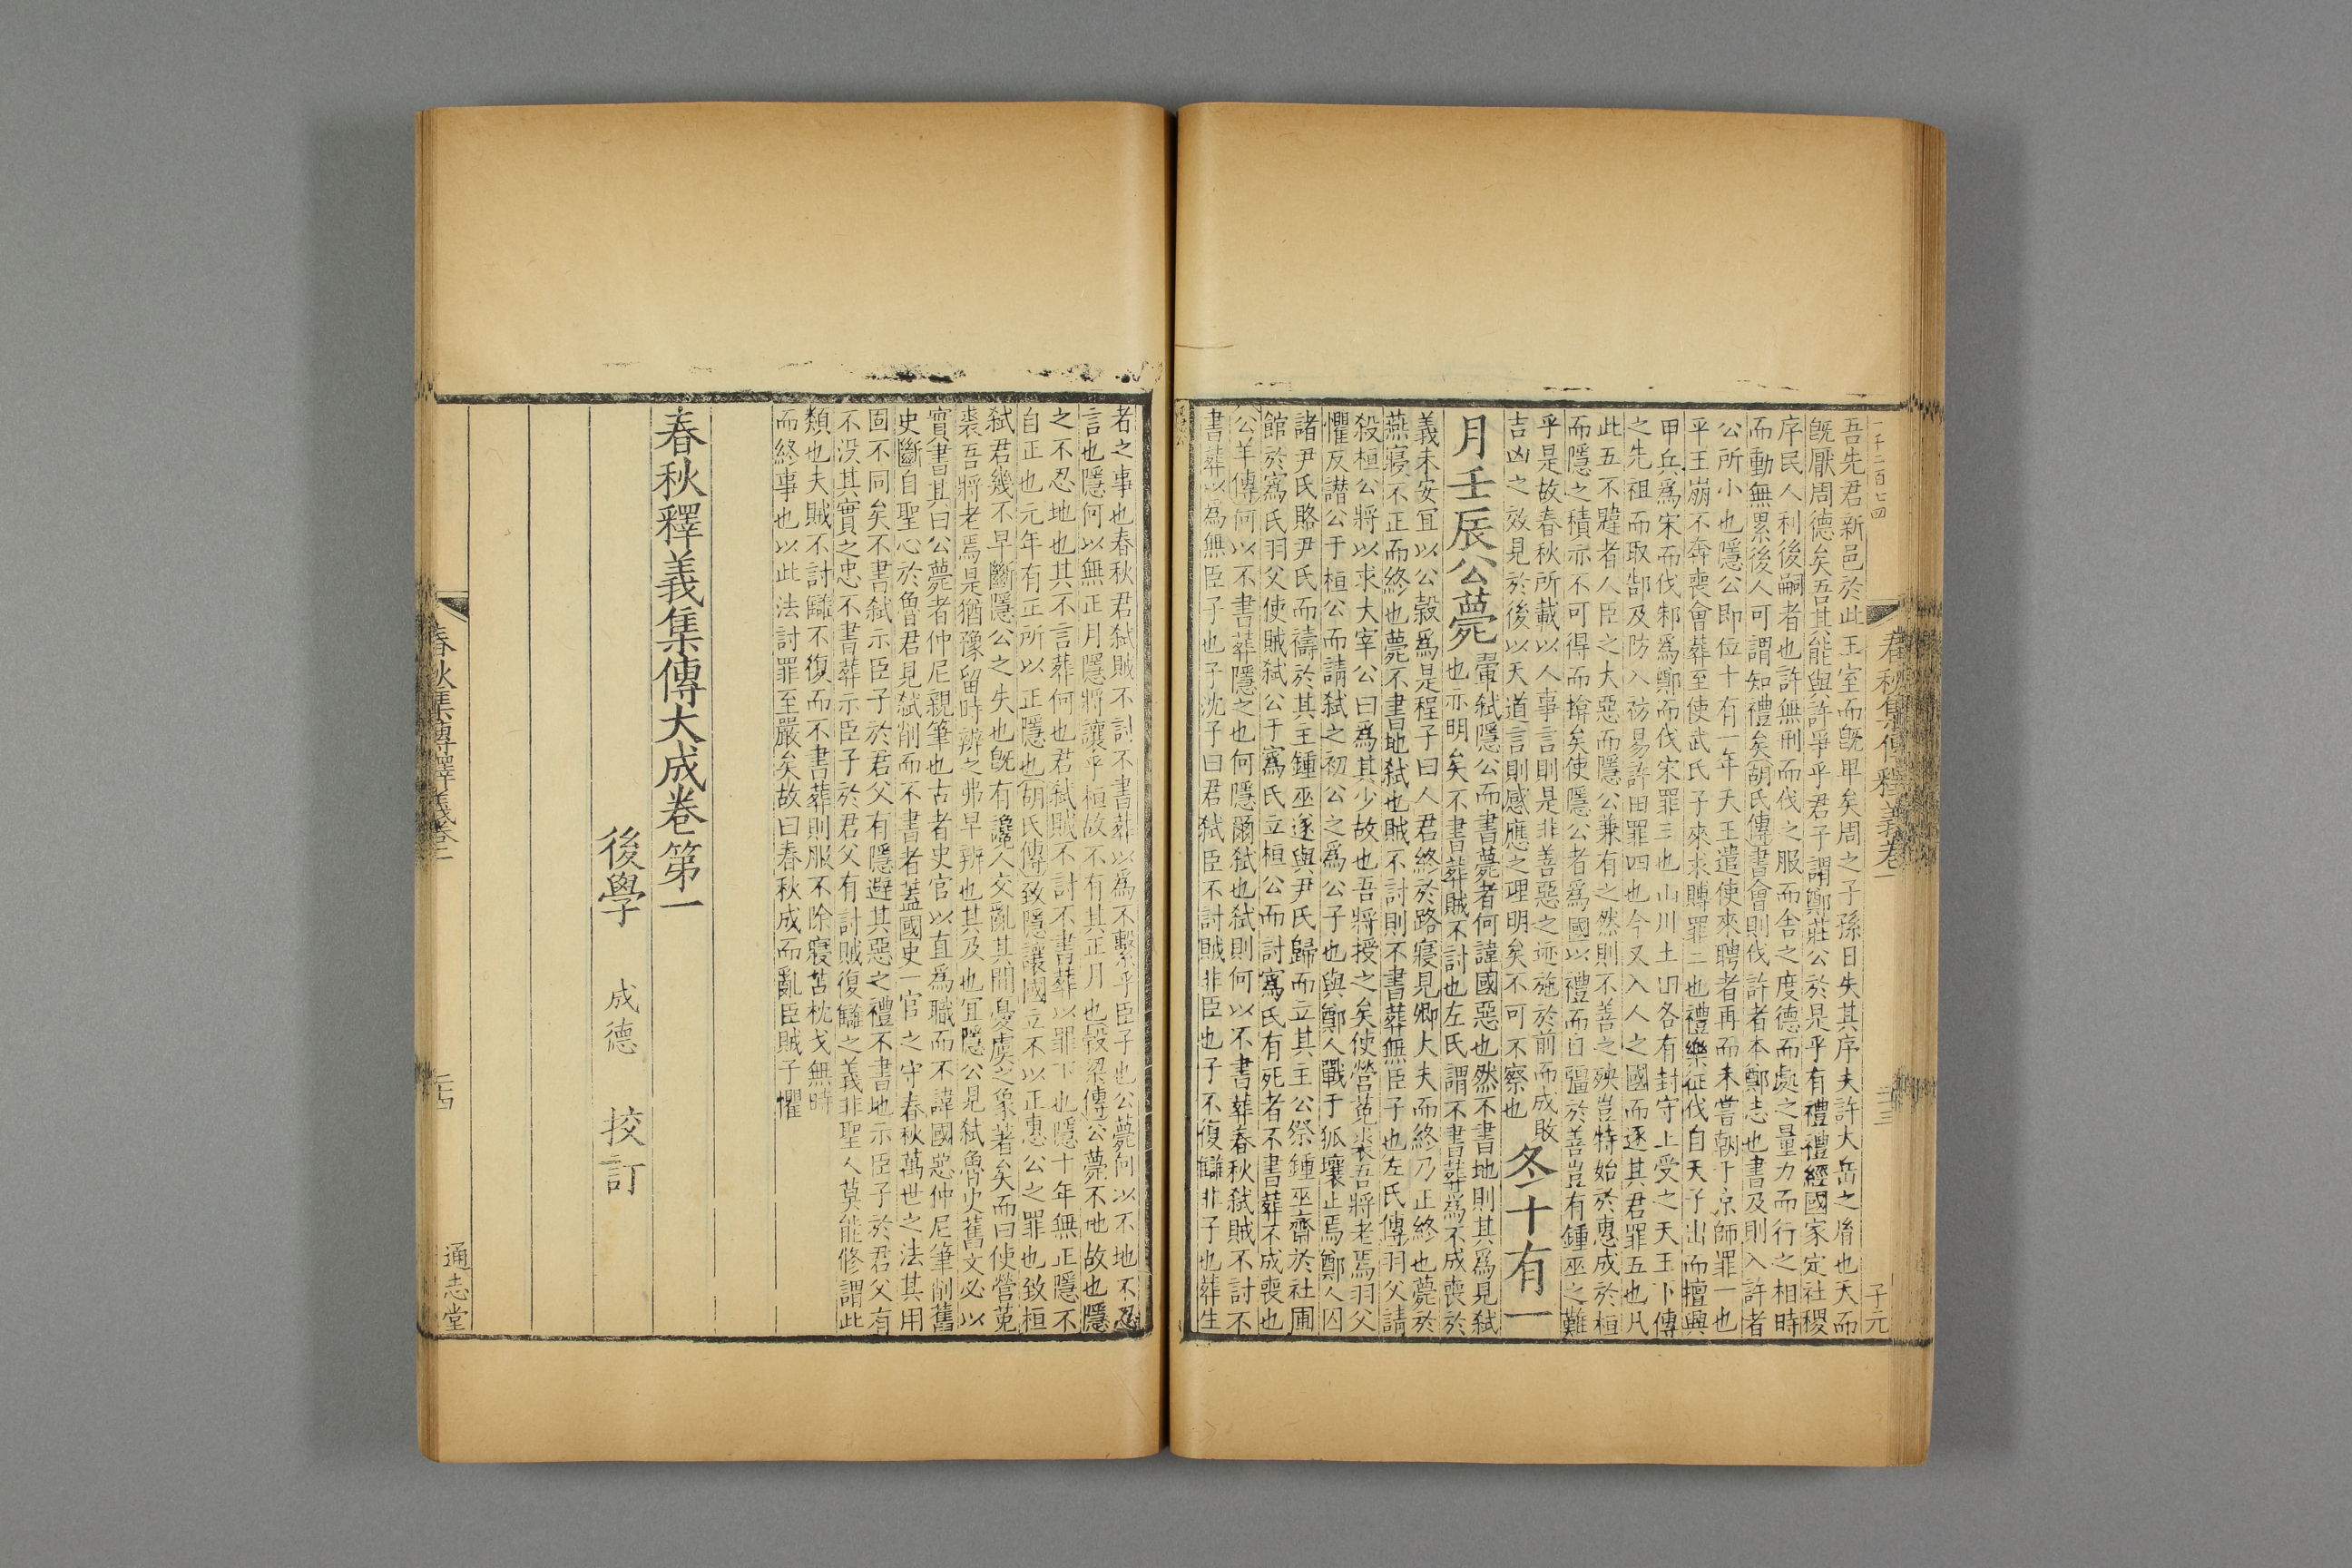 一千二百七四
春秋集傳釋義卷一
二十三
子元
吾先君新邑於此王室而旣卑矣周之子孫日失其序夫許大岳之胤也天而
旣厭周德矣吾其能與許爭乎君子謂鄭莊公於是乎有禮禮經國家定社稷
序民人利後嗣者也許無刑而伐之服而舍之度德而處之量力而行之相時
而動無累後人可謂知禮矣胡氏傳書會則伐許者本鄭志也書及則入許者
公所小也隱公即位十有一年天王遣使來聘者再而未嘗朝于京師罪一也
平王崩不奔喪會葬至使武氏子來求賻罪二也禮樂征伐自天子出而擅興
甲兵爲宋而伐邾爲鄭而伐宋罪三也山川土田各有封守上受之天王下傳
之先祖而取郜及防入祊易許田罪四也今又入人之國而逐其君罪五也凡
此五不韙者人臣之大惡而隱公兼有之然則不善之殃豈特始於惠成於桓
而隱之積亦不可得而揜矣使隱公者爲國以禮而自彊於善豈有鍾巫之難
乎是故春秋所載以人事言則是非善惡之迹施於前而成敗
吉凶之效見於後以天道言則感應之理明矣不可不察也
冬十有一
月壬辰公薨
翬弒隱公而書薨者何諱國惡也然不書地則其爲見弒
也亦明矣不書葬賊不討也左氏謂不書葬爲不成喪於
義未安宜以公穀爲是程子曰人君終於路寢見卿大夫而終乃正終也薨於
燕寢不正而終也薨不書地弒也賊不討則不書葬無臣子也左氏傳羽父請
殺桓公將以求大宰公曰爲其少故也吾將授之矣使營菟裘吾將老焉羽父
懼反譖公于桓公而請弒之初公之爲公子也與鄭人戰于狐壤止焉鄭人囚
諸尹氏賂尹氏而禱於其主鍾巫遂與尹氏歸而立其主公祭鍾巫齋於社圃
館於寪氏羽父使賊弒公于寪氏立桓公而討寪氏有死者不書葬不成喪也
公羊傳何以不書葬隱之也何隱爾弒也弒則何以不書葬春秋弒賊不討不
書葬以爲無臣子也子沈子曰君弒臣不討賊非臣也子不復讎非子也葬生
者之事也春秋君弒賊不討不書葬以爲不繫乎臣子也公薨何以不地不忍
言也隱何以無正月隱將讓乎桓故不有其正月也穀梁傳公薨不地故也隱
之不忍地也其不言葬何也君弒賊不討不書葬以罪下也隱十年無正隱不
自正也元年有正所以正隱也胡氏傳致隱讓國立不以正惠公之罪也致桓
弒君幾不早斷隱公之失也旣有讒人交亂其間憂虞之象著矣而曰使營菟
裘吾將老焉是猶豫留時辨之弗早辨也其及也宜隱公見弒魯史舊文必以
實書其曰公薨者仲尼親筆也古者史官以直爲職而不諱國惡仲尼筆削舊
史斷自聖心於魯君見弒削而不書者蓋國史一官之守春秋萬世之法其用
固不同矣不書弒示臣子於君父有隱避其惡之禮不書地示臣子於君父有
不没其實之忠不書葬示臣子於君父有討賊復讎之義非聖人莫能修謂此
類也夫賊不討讎不復而不書葬則服不除寢苫枕戈無時
而終事也以此法討罪至嚴矣故曰春秋成而亂臣賊子懼
春秋釋義集傳大成卷第一
後學 成德 挍訂
春秋集傳釋義卷一
二十四
通志堂